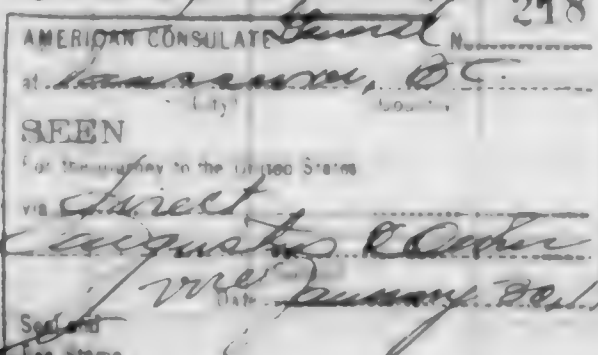 218
AMERICAN CONSULATE General No
at Vancouver, B.C.
(City) (Country)
SEEN
For the journey to the United States
via direct
Augustus E
Vice
Date January 30
Seal and
Fee stamp